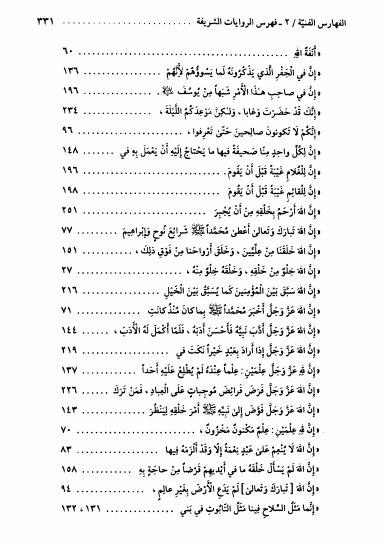 الفهارس الفنيّة / ٢ - فهرس الروايات الشريفة ........................ ٣٣١
«أَنَفَةٌ للهِ ........................ ٦٠
«إِنَّ في الجَفْرِ الَّذي يَذْكُرُونَهُ لَما يَسُوؤُهُمْ لأَنَّهُمْ ........................ ١٣٦
«إِنَّ في صاحِبِ هٰذا الأَمْرِ شَبَهاً مِنْ يُوسُفَ ........................ ١٩٦
«إِنَّكَ قَدْ حَضَرْتَ وَغابا ، وَلٰكِنْ مَوْعِدَكُمُ اللَّيْلَةَ ، ........................ ٢٣٤
«إِنَّكُمْ لَا تَكونونَ صالِحينَ حَتّىٰ تَعْرِفوا ، ........................ ٩٦
«إِنَّ لِكُلِّ واحِدٍ مِنّا صَحيفَةً فيها ما يَحْتاجُ إِلَيْهِ أَنْ يَعْمَلَ بِهِ في ........................ ١٤٨
«إِنَّ لِلْغُلامِ غَيْبَةً قَبْلَ أَنْ يَقومَ ........................ ١٩٦
«إِنَّ لِلْقائِمِ غَيْبَةً قَبْلَ أَنْ يَقومَ ........................ ١٩٨
«إِنَّ اللهَ أَرْحَمُ بِخَلْقِهِ مِنْ أَنْ يُجْبِرَ ........................ ٢٥١
«إِنَّ اللهَ تَبارَكَ وَتَعالىٰ أَعْطىٰ مُحَمَّداً ﷺ شَرائِعَ نُوحٍ وَإِبْراهيمَ ........................ ٧٧
«إِنَّ اللهَ خَلَقَنا مِنْ عِلِّيِّينَ ، وَخَلَقَ أَرْواحَنا مِنْ فَوْقِ ذلِكَ ، ........................ ١٥١
«إِنَّ اللهَ خِلْوٌ مِنْ خَلْقِهِ ، وَخَلْقُهُ خِلْوٌ مِنْهُ ، ........................ ٢٧
«إِنَّ اللهَ سَبَّقَ بَيْنَ المُؤْمِنينَ كَما يُسَبَّقُ بَيْنَ الخَيْلِ ........................ ٢١٦
«إِنَّ اللهَ عَزَّ وَجَلَّ أَخْبَرَ مُحَمَّداً ﷺ بِما كانَ مُنْذُ كانَتِ ........................ ٧١
«إِنَّ اللهَ عَزَّ وَجَلَّ أَدَّبَ نَبِيَّهُ فَأَحْسَنَ أَدَبَهُ ، فَلَمّا أَكْمَلَ لَهُ الأَدَبَ ، ........................ ١٤٤
«إِنَّ اللهَ عَزَّ وَجَلَّ إِذا أَرادَ بِعَبْدٍ خَيْراً نَكَتَ في ........................ ٢١٩
«إِنَّ للهِ عَزَّ وَجَلَّ عِلْمَيْنِ: عِلْماً عِنْدَهُ لَمْ يُطْلِعْ عَلَيْهِ أَحَداً ........................ ١٣٧
«إِنَّ اللهَ عَزَّ وَجَلَّ فَرَضَ فَرائِضَ مُوجَباتٍ عَلَى العِبادِ ، فَمَنْ تَرَكَ ........................ ٢٢٦
«إِنَّ اللهَ عَزَّ وَجَلَّ فَوَّضَ إِلىٰ نَبِيِّهِ ﷺ أَمْرَ خَلْقِهِ لِيَنْظُرَ ........................ ١٤٣
«إِنَّ للهِ عِلْمَيْنِ: عِلْمٌ مَكْنُونٌ مَخْزُونٌ ، ........................ ٧٠
«إِنَّ اللهَ لَا يُنْعِمُ عَلىٰ عَبْدٍ نِعْمَةً إِلّا وَقَدْ أَلْزَمَهُ فِيها ........................ ٨٣
«إِنَّ اللهَ لَمْ يَسْأَلْ خَلْقَهُ ما في أَيْديهِمْ قَرْضاً مِنْ حاجَةٍ بِهِ ........................ ١٥٨
«إِنَّ اللهَ [ تَبارَكَ وَتَعالىٰ ] لَمْ يَدَعِ الأَرْضَ بِغَيْرِ عالِمٍ ، ........................ ٩٤
«إِنَّما مَثَلُ السِّلاحِ فينا مَثَلُ التّابُوتِ في بَني ........................ ١٣١ ، ١٣٢